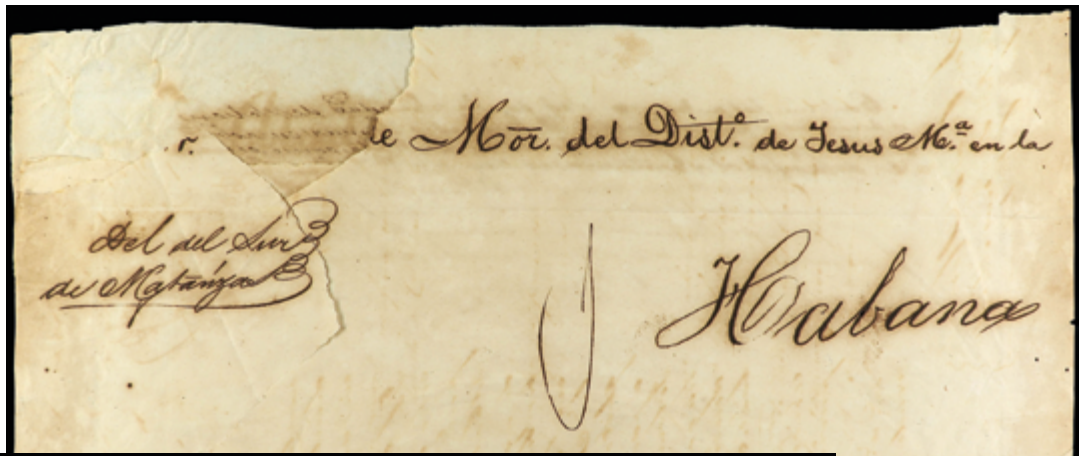 r. de Mor. del Dist.º de Jesus M.ª en la
Del del Sur
de Matánzas
Habana